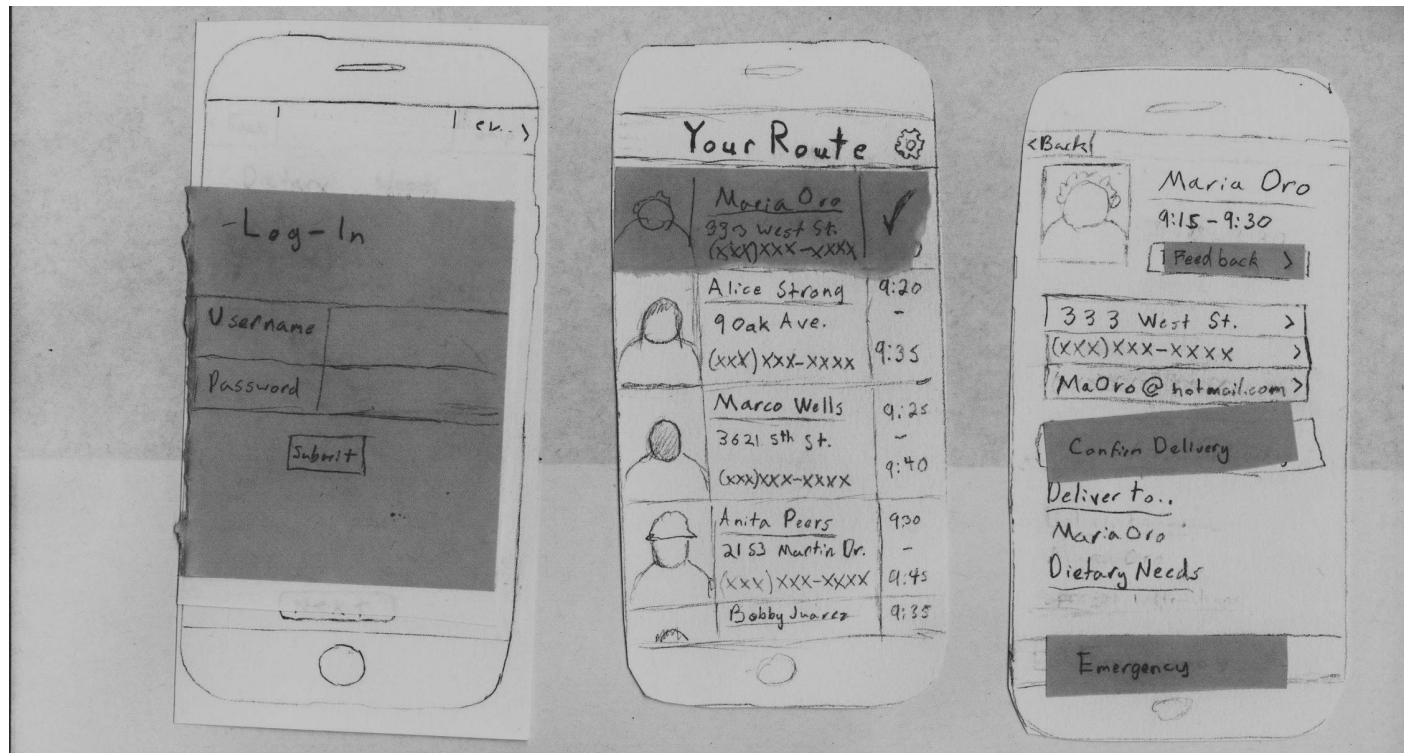 -Log-In
Username
Password
Submit
Your Route
Maria Oro
333 West St.
(xxx)xxx-xxxx
Alice Strong
9 Oak Ave.
(xxx)xxx-xxxx
9:20
-
9:35
Marco Wells
3621 5th St.
(xxx)xxx-xxxx
9:25
-
9:40
Anita Peers
2153 Martin Dr.
(xxx)xxx-xxxx
930
-
9:45
Bobby Juarez
9:35
<Back
Maria Oro
9:15-9:30
Feedback >
333 West St. >
(xxx)xxx-xxxx >
MaOro@hotmail.com >
Confirm Delivery
Deliver to..
Maria Oro
Dietary Needs
Emergency